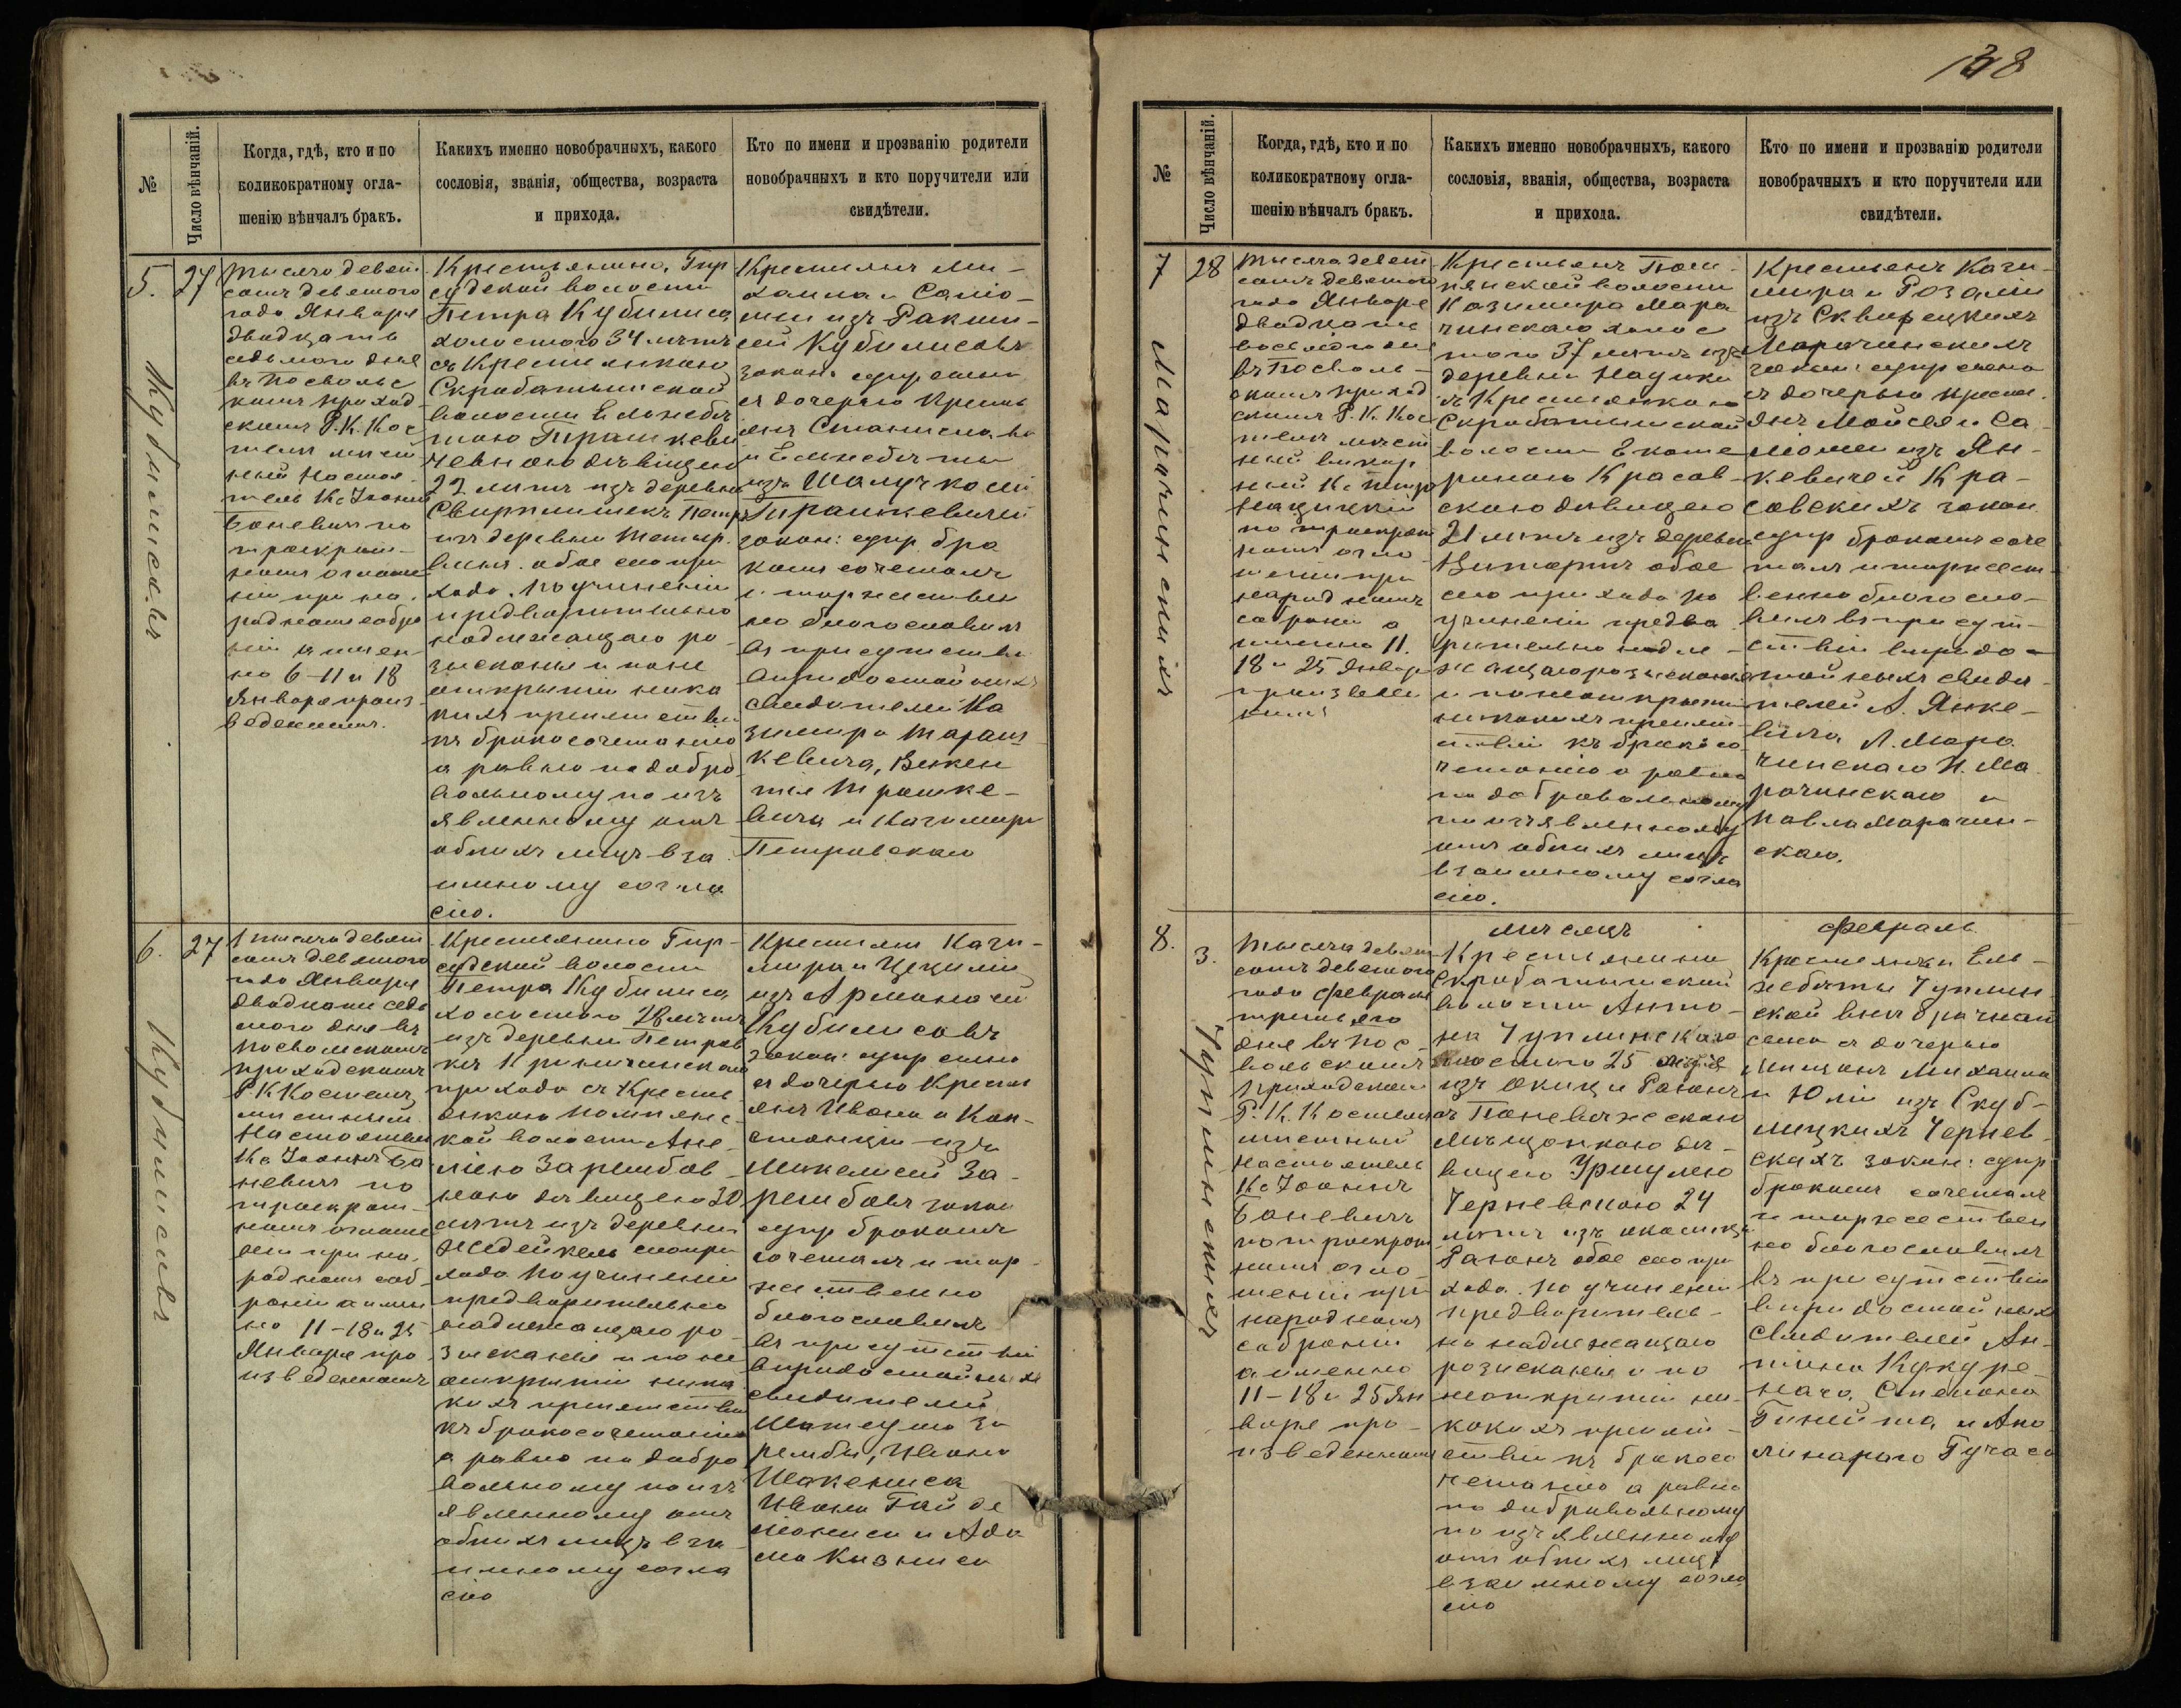 138
№
Число вѣнчаній.
Когда, гдѣ, кто и по
коликократному огла-
шенію вѣнчалъ бракъ.
Какихъ именно новобрачныхъ, какого
сословія, званія, общества, возраста
и прихода.
Кто по имени и прозванію родители
новобрачныхъ и кто поручители или
свидѣтели.
5.
27
Кубилисовъ
Тысяча девят
сотъ девятого
года Января
двадцать
седьмого дня
въ Посволь
скомъ приход
скомъ Р.К. Кос
телѣ мѣст
ный Настоя
тель Кс Іоаннъ
Баневичъ по
троекрат-
номъ оглаше
ніи при на
родномъ собра
ніи а имен-
но 6-11 и 18
Января произ
веденномъ.
Крестьянина, Гир
судской волости
Петра Кубилиса
холостого 34 лѣтъ
съ Крестьянкою
Скробатышской
волости Ельжбе
тою Трашкеви
чевною дѣвицею
22 лѣтъ изъ деревни
изъ деревни
обое сего при
хода, по учиненіи
предварительно
надлежащаго ро
зысканія и по не
открытіи ника
кихъ препятствій
къ бракосочетанію
а равно по добро
вольному по изъ
явленному отъ
обѣихъ лицъ вза
имному согла
сію.
Крестьянъ Ми-
хаила и Саліо-
меи изъ Ракши-
сей Кубилисовъ
закон: супр сына
съ дочерью Кресть
янъ Станислава
и Ельжбеты
изъ
Трашкевичей
закон: супр. бра
комъ сочеталъ
и торжествен
но благословилъ
въ присутствіи
достойныхъ
свидѣтелей Ка
зимира Тараш
кевича, Викен
тія Трашке-
вича и Казимира
Петровскаго
6.
27
Кубилисовъ
Тысяча девят
сотъ девятого
года Января
двадцать седь
мого дня въ
Посвольскомъ
приходскомъ
Р К Костелѣ
мѣстный
Настоятель
Кс Іоаннъ Ба
невичъ по
троекрат-
номъ оглаше
ніи при на
родномъ соб-
раніи а имен
но 11-18 и 25
Января про
изведенномъ
Крестьянина Гир-
судской волости
Петра Кубилиса
холостого 28 лѣтъ
изъ деревни Петров
ки Криничинскаго
прихода съ Кресть
янкою Помпянс-
кой волости Ане-
лею Зарембов-
ною дѣвицею 30
лѣтъ изъ деревни
сего при
хода по учиненіи
предварительно
надлежащаго ро-
зысканія и по не
открытіи ника
кихъ препятствій
къ бракосочетанію
а равно по добро
вольному по изъ
явленному отъ
обѣихъ лицъ вза-
имному согла
сію
Крестьянъ Кази-
мира и Цециліи
изъ
Кубилисовъ
закон: супр сына
съ дочерью Кресть
янъ Ивана и Кон-
станціи изъ
За-
рембовъ закон
супр бракомъ
сочеталъ и тор-
жественно
благословилъ
въ присутствіи
достойныхъ
свидѣтелей
За
рембы, Ивана
Ивана
и Ада
ма
№
Число вѣнчаній.
Когда, гдѣ, кто и по
коликократному огла-
шенію вѣнчалъ бракъ.
Какихъ именно новобрачныхъ, какого
сословія, званія, общества, возраста
и прихода.
Кто по имени и прозванію родители
новобрачныхъ и кто поручители или
свидѣтели.
7
28
Марачинскихъ
Тысяча девят
сотъ девятого
года Января
двадцать
восьмого дня
въ Посволь-
скомъ приход
скомъ Р.К. Кос
телѣ мѣст
ный викар
ный Кс Петръ
по троекрат
номъ огла
шеніи при
народномъ
собраніи а
именно 11.
18 и 25 Января
произведен
номъ
Крестьянъ Пом-
пянской волости
Казимира Мара
чинскаго холос
того 37 лѣтъ изъ
деревни
съ Крестьянкою
Скробатышской
волости Екате
риною Красов-
скою дѣвицею
21 лѣтъ изъ деревни
обое
сего прихода по
учиненіи предва
рительно надле-
жащаго розысканія
и по неоткрытіи
никакихъ препят
ствій къ бракосо
четанію а равно
по добровольному
по изъявленному
отъ обѣихъ лицъ
взаимному согла
сію.
Крестьянъ Кази-
мира и Розаліи
изъ Скварецкихъ
Марачинскихъ
закон: супр сына
съ дочерью Кресть
янъ Мойсея и Са-
ліомеи изъ Ян-
кевичей Кра-
совскихъ закон
супр бракомъ соче
талъ и торжест-
венно благосло-
вилъ въ присут-
ствіи
достойныхъ свидѣ-
телей А. Янке-
вича Л. Мара
чинскаго И. Ма
рачинскаго и
Павла Марачин-
скаго.
мѣсяцъ Февраль
8.
3.
Чуплинскихъ
Тысяча девят
сотъ девятого
года Февраля
третьяго
дня въ Пос-
вольскомъ
приходскомъ
Р. К. Костелѣ
мѣстный
Настоятель
Кс Іоаннъ
Баневичъ
по троекрат
номъ огла-
шеніи при
народномъ
собраніи
а именно
11-18 и 25 Ян
варя про-
изведенномъ
Крестьянина
Скробатышской
волости Анто-
на Чуплинскаго
холостого 25 лѣтъ
изъ
съ Поневѣжскою
мѣщанкою дѣ-
вицею Уршулею
Черневскою 24
лѣтъ изъ околицы
обое сего при
хода. По учиненіи
предваритель-
но надлежащаго
розысканія и по
неоткрытіи ни-
какихъ препят-
ствій къ бракосо
четанію а равно
по добровольному
по изъявленному
отъ обѣихъ лицъ
взаимному согла
сію
Крестьянки Ель-
жбеты Чуплин
ской внѣбрачнаго
сына съ дочерью
мѣщанъ Михаила
и Юліи изъ Скуб-
лицкихъ Чернев-
скихъ закон: супр
бракомъ сочеталъ
и торжествен
но благословилъ
въ присутствіи
достойныхъ
Свидѣтелей Ан-
тона
Степана
и Апо
линарого